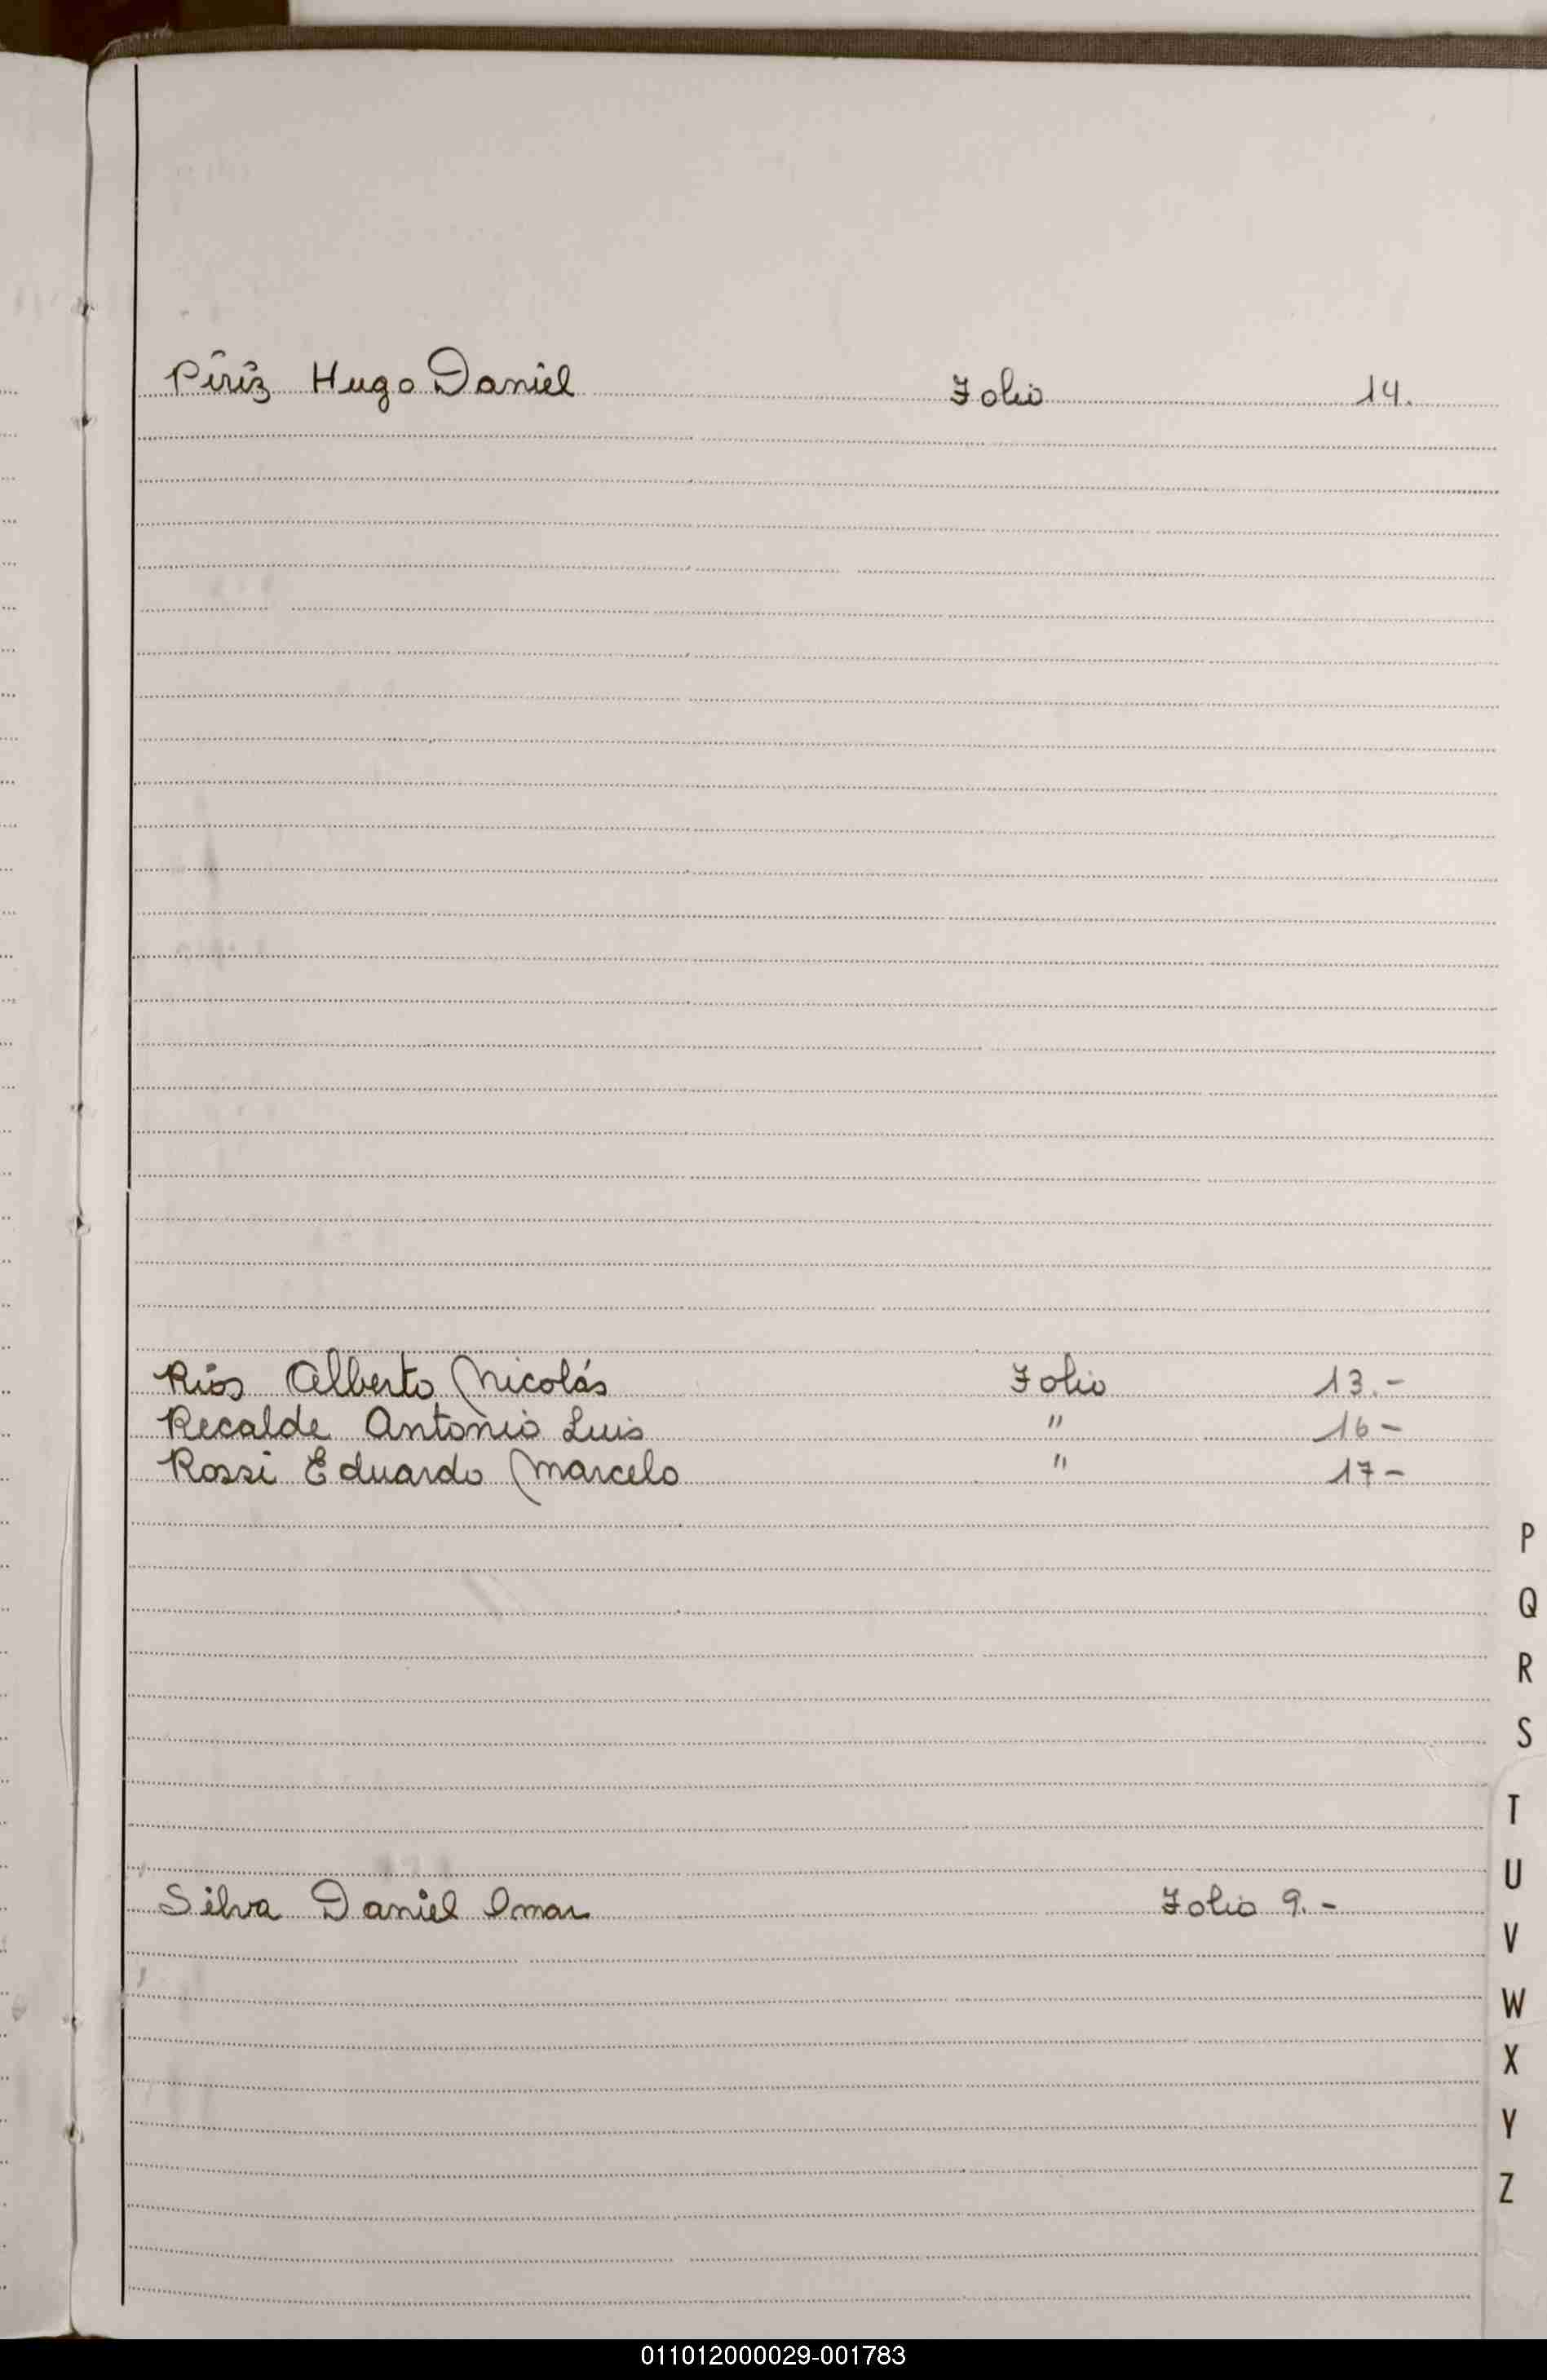 Píriz Hugo Daniel Folio 14.
Ríos Alberto Nicolás Folio 13.-
Recalde Antonio Luis " 16-
Rossi Eduardo Marcelo " 17-
P
Q
R
S
T
U
Silva Daniel Omar Folio 9.-
V
W
X
Y
Z
011012000029-001783